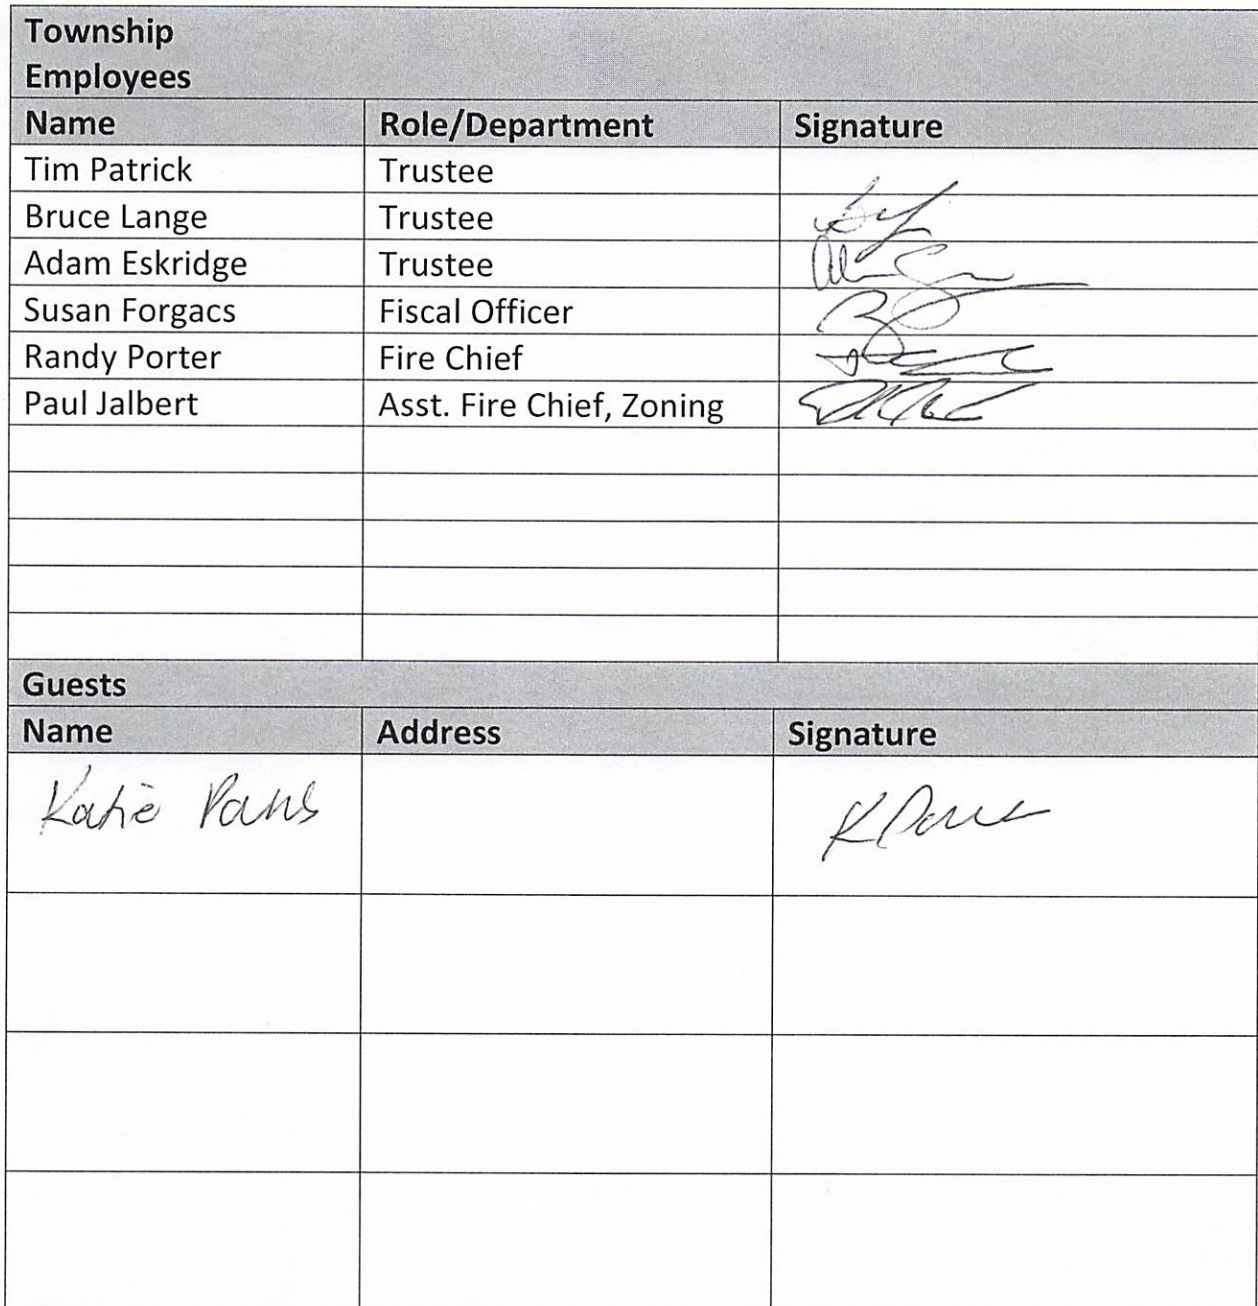 Township
Employees
Name Role/Department Signature
Tim Patrick Trustee
Bruce Lange Trustee
Adam Eskridge Trustee
Susan Forgacs Fiscal Officer
Randy Porter Fire Chief
Paul Jalbert Asst. Fire Chief, Zoning
Guests
Name Address Signature
Katie